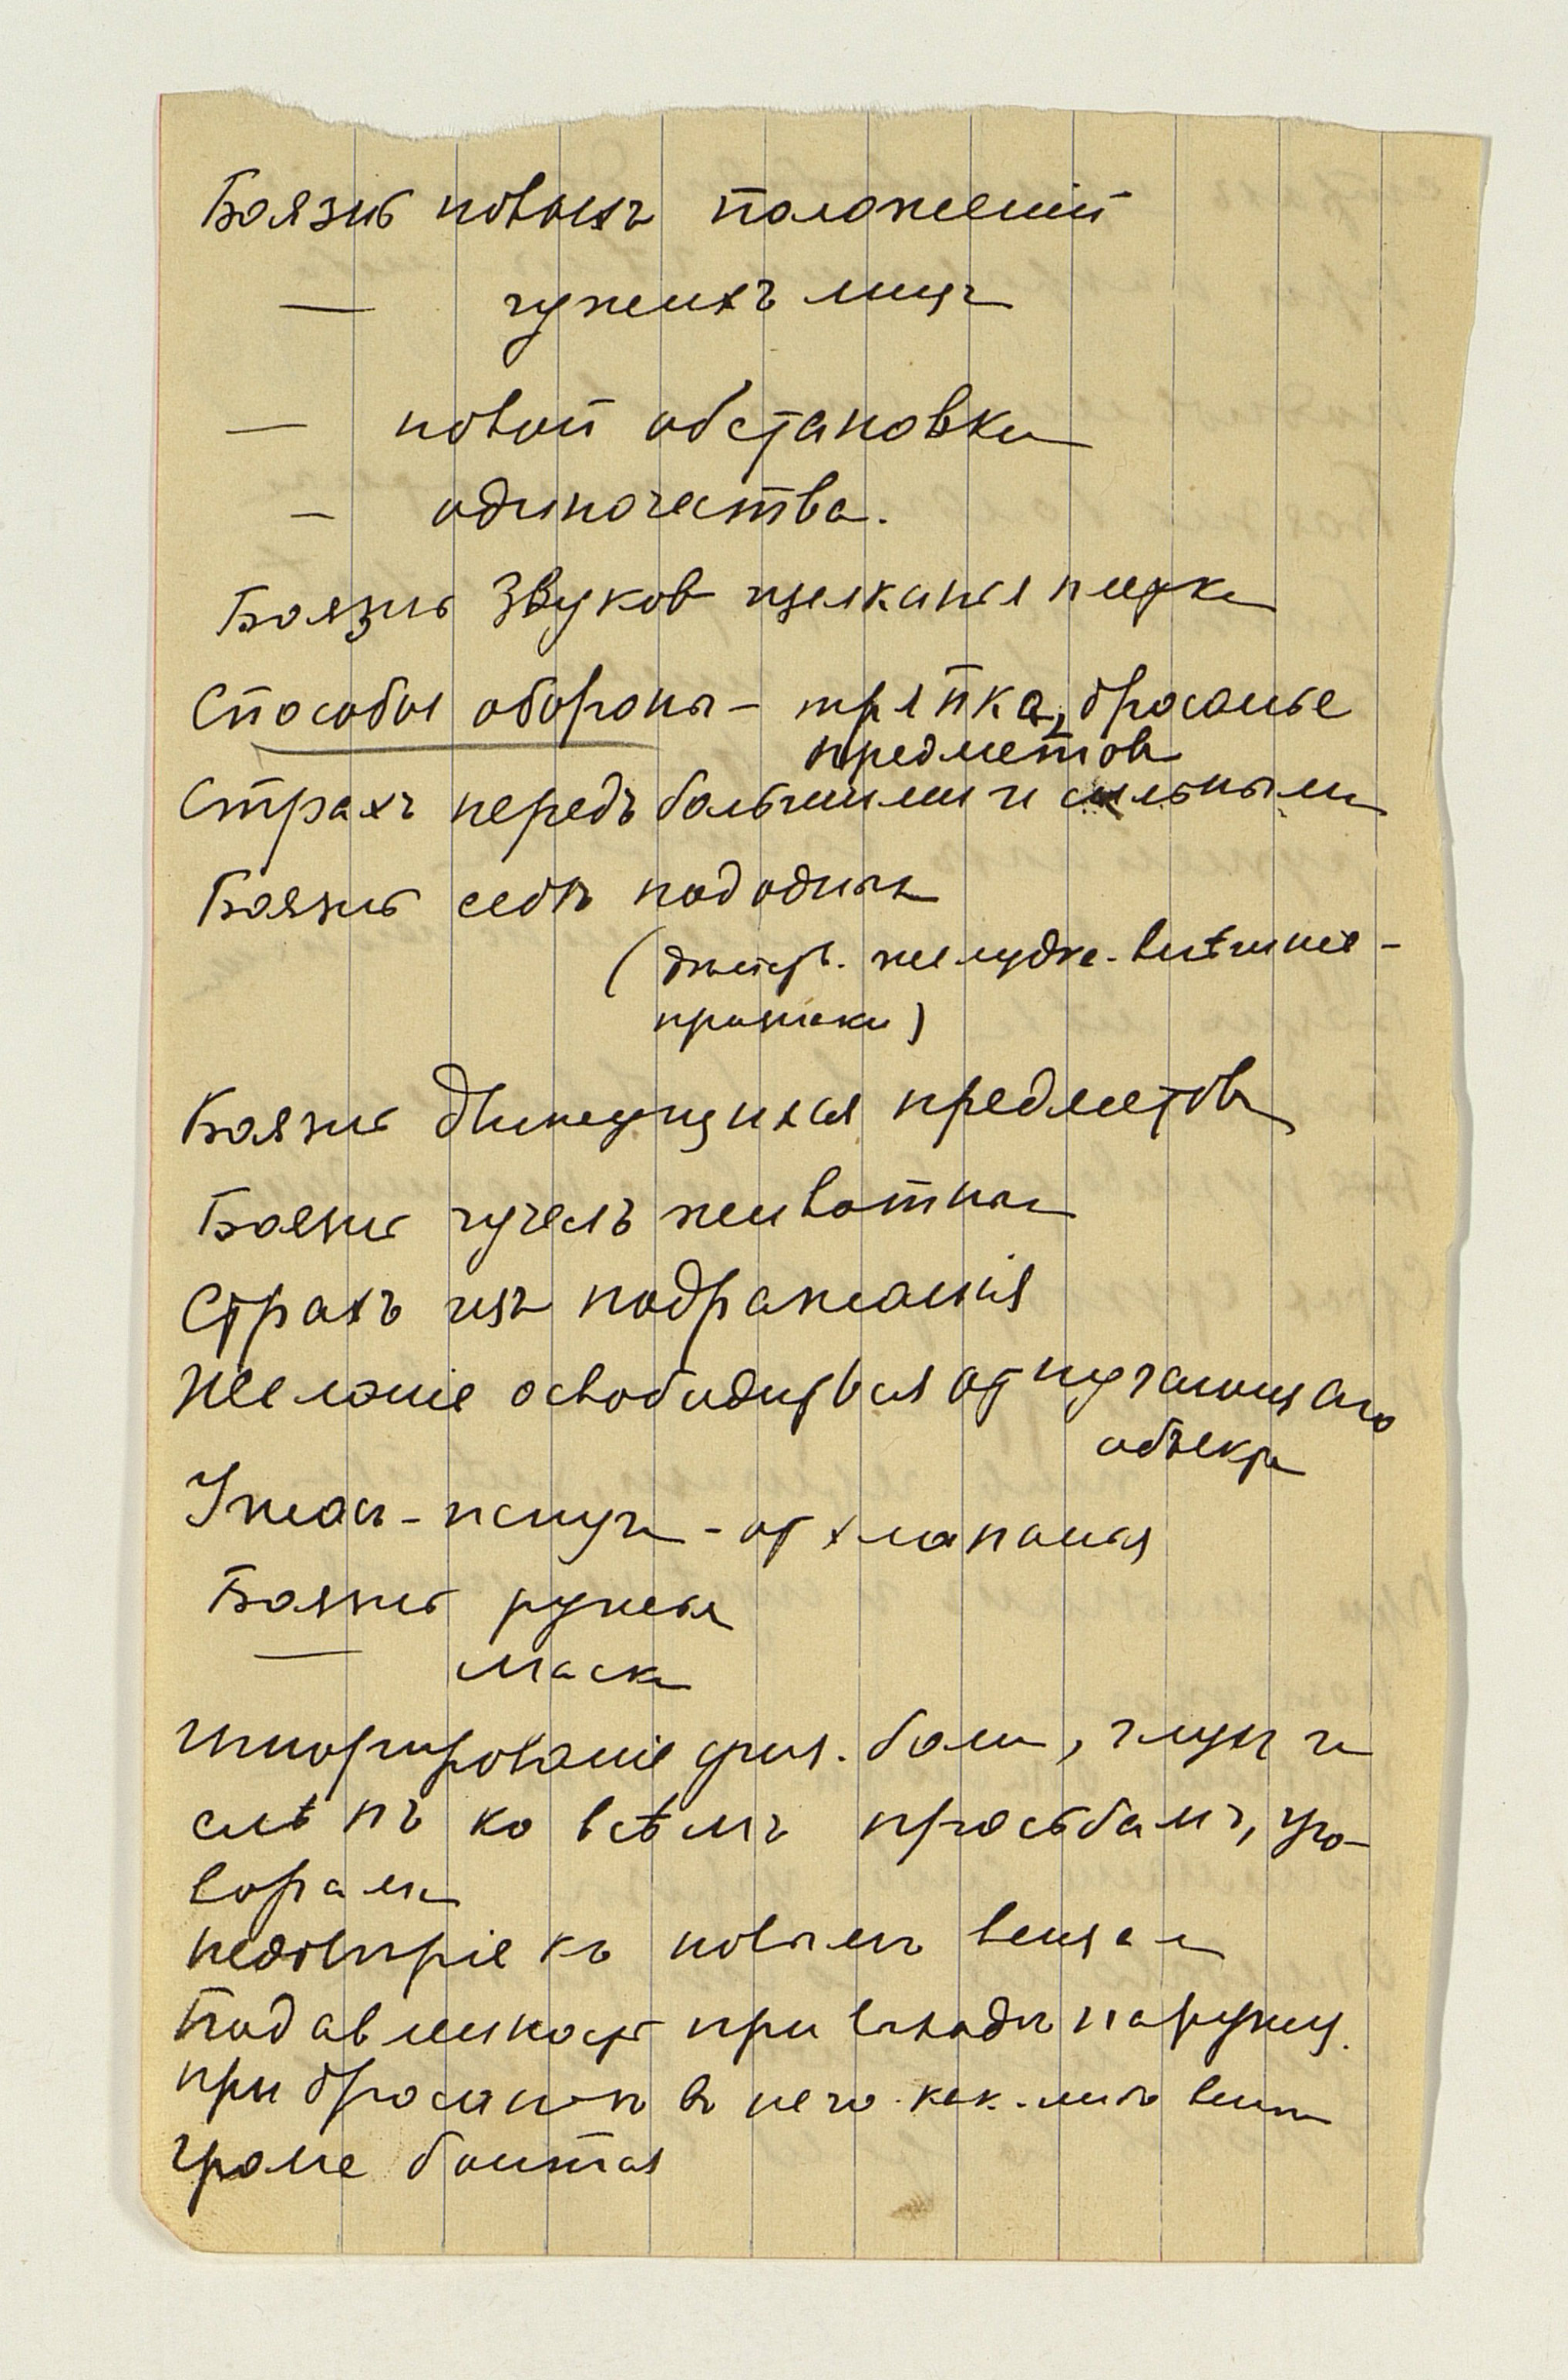 Боязнь новыхъ положеній
— чужихъ лицъ
— новой обстановки
— одиночества.
Боязнь звуков щелканья
Способы обороны — тряпка, бросанье
предметовъ
Страхъ передъ большими и сильными
Боязнь себѣ подобныхъ
(дѣйств. желудка. внѣшніе —
признаки)
Боязнь движущихся предметовъ
Боязнь чучелъ животныхъ
Страхъ изъ подражанія
Желаніе освободиться от пугающаго
объекта
Ужасъ - испугъ - от хлопанья
Боязнь ружья
— маски
Игнорированіе физ. боли, глухъ и
слѣпъ ко всѣмъ просьбамъ, уго-
ворамъ
недовѣріе къ новымъ вещамъ
Подавленность при выходѣ наружу.
при бросаніи въ него как.-либо вещи
громе боится